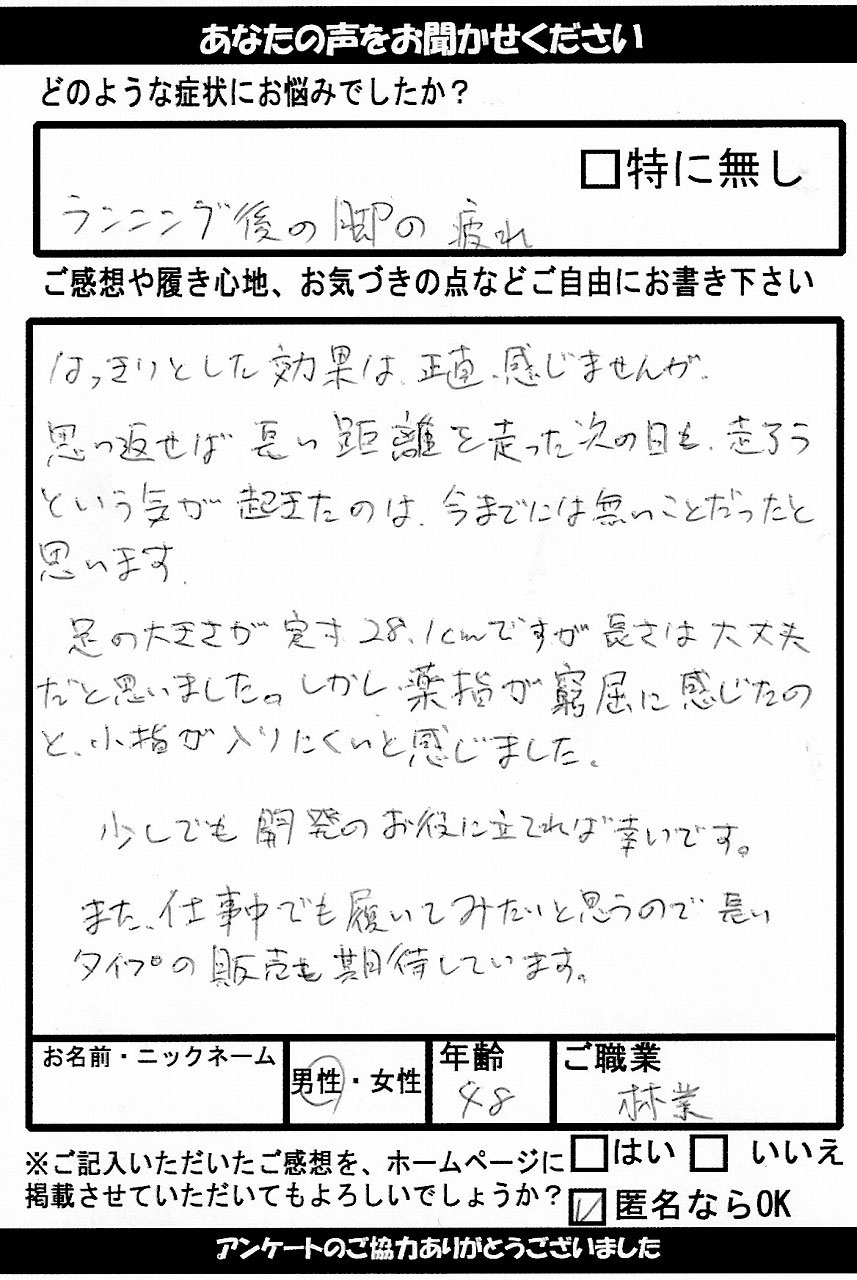 あなたの声をお聞かせください
どのような症状にお悩みでしたか？
□特に無し
ランニング後の脚の疲れ
ご感想や履き心地、お気づきの点などご自由にお書き下さい
はっきりとした効果は、正直、感じませんが、
思い返せば長い距離を走った次の日も、走ろう
という気が起きたのは、今までには無いことだったと
思います。
足の大きさが実寸28.1cmですが長さは大丈夫
だと思いました。しかし、薬指が窮屈に感じたの
と、小指が入りにくいと感じました。
少しでも開発のお役に立てれば幸いです。
また、仕事中でも履いてみたいと思うので長い
タイプの販売も期待しています。
お名前・ニックネーム
男性・女性
年齢
48
ご職業
林業
※ご記入いただいたご感想を、ホームページに □はい □ いいえ
掲載させていただいてもよろしいでしょうか？ ☑匿名ならOK
アンケートのご協力ありがとうございました